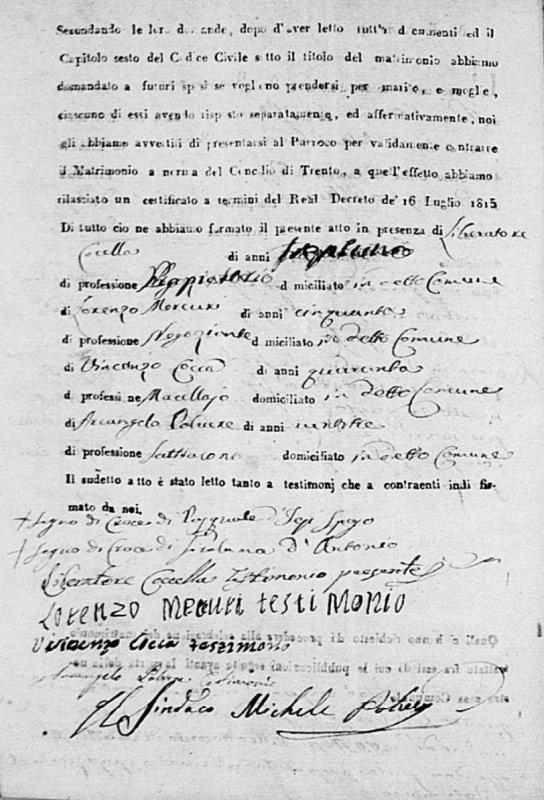 Secondando le loro domande, dopo d'aver letto tutt'i documenti ed il
Capitolo sesto del Codice Civile sotto il titolo del matrimonio abbiamo
domandato a futuri sposi se vogliono prendersi per marito, e moglie,
ciascuno di essi avendo risposto separatamente, ed affermativamente, noi
gli abbiamo avvertiti di presentarsi al Parroco per validamente contrarre
il Matrimonio a norma del Concilio di Trento, a quell'effetto abbiamo
rilasciato un certificato a termini del Real Decreto de' 16 Luglio 1815
Di tutto cio ne abbiamo formato il presente atto in presenza di Liberatore
Coccella di anni
di professione domiciliato in detto Comune
di Lorenzo Mercuri di anni cinquanta
di professione Negoziante domiciliato in detto Comune
di Vincenzo Cocca di anni quaranta
di professione Macellajo domiciliato in detto Comune
di Arcangelo di anni
di professione domiciliato in detto Comune
Il sudetto atto è stato letto tanto a testimonj che a contraenti indi fir-
mato da noi.
+ Segno di Croce di Pasquale Sposo
+ Segno di Croce di d'Antonio
Liberatore Coccella Testimonio presente
Lorenzo Mercuri testiMonio
Vincenzo Cocca testimonio
Arcangelo Testimonio
Il Sindaco Michele